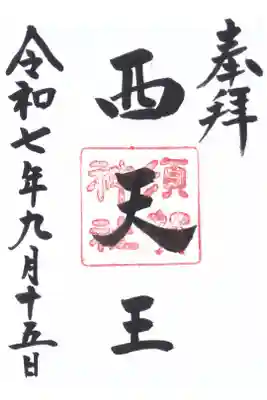 奉拝
西天王
須賀神社
令和七年九月十五日